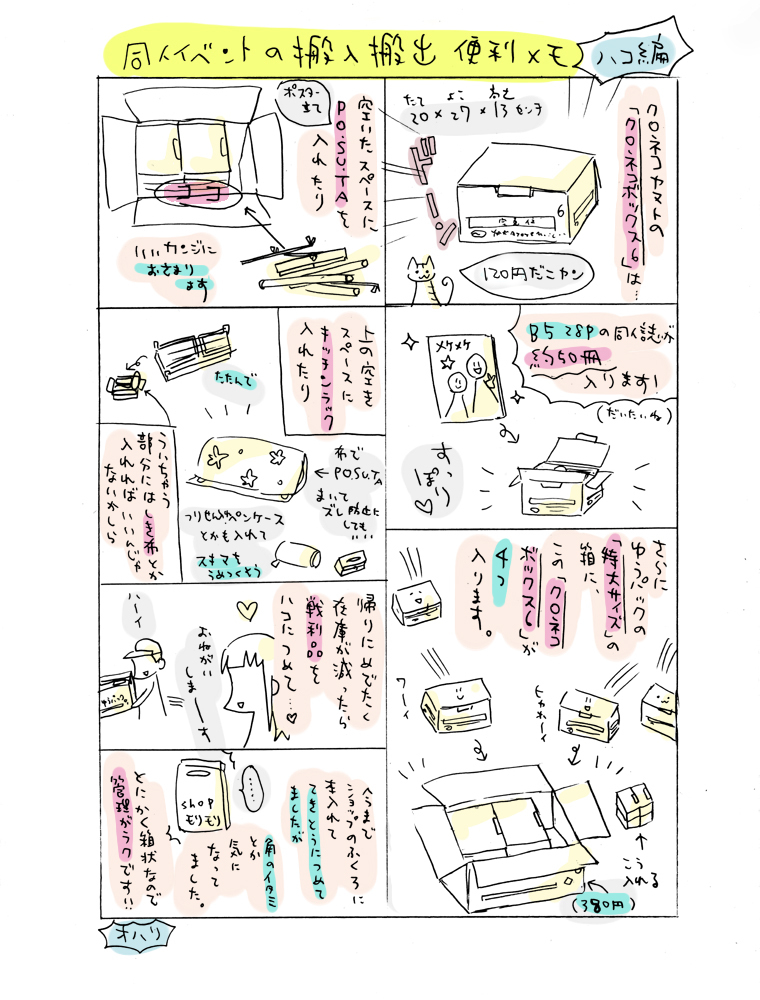 同人イベントの搬入搬出 便利メモ
ハコ編
クロネコヤマトの
「クロネコボックス6」は…
たて よこ 高さ
20×27×13センチ
6
120円だニャン
B5 28Pの同人誌が
約50冊
入ります!
(だいたいね)
メケメケ
すっぽり♡
さらに
ゆうパックの
「特大サイズ」の
箱に、
この「クロネコ
ボックス6」が
4つ
入ります。
ワーイ
ヒャホーイ
↑
こう
入れる
(380円)
空いたスペースに
PO.SU.TAを
入れたり
ポスター
立て
いいカンジに
おさまり
ます
上の空き
スペースに
キッチンラック
入れたり
たたんで
布で
PO.SU.TA
まいて
ズレ防止に
しても
いい
つりせん入れペンケース
とかも入れて
スキマを
うめつくそう
ういちゃう
部分にはしき布とか
入れればいいんじゃ
ないかしら
帰りにめでたく
在庫が減ったら
戦利品を
ハコにつめて…♡
おねがい
しまーす
ハーイ
いままで
ショップのふくろに
本入れて
てきとうにつめて
ましたが
角のイタミ
とか
気に
なって
ました。
……
shop
モリモリ
とにかく箱状なので
管理がラクです!!
オハリ